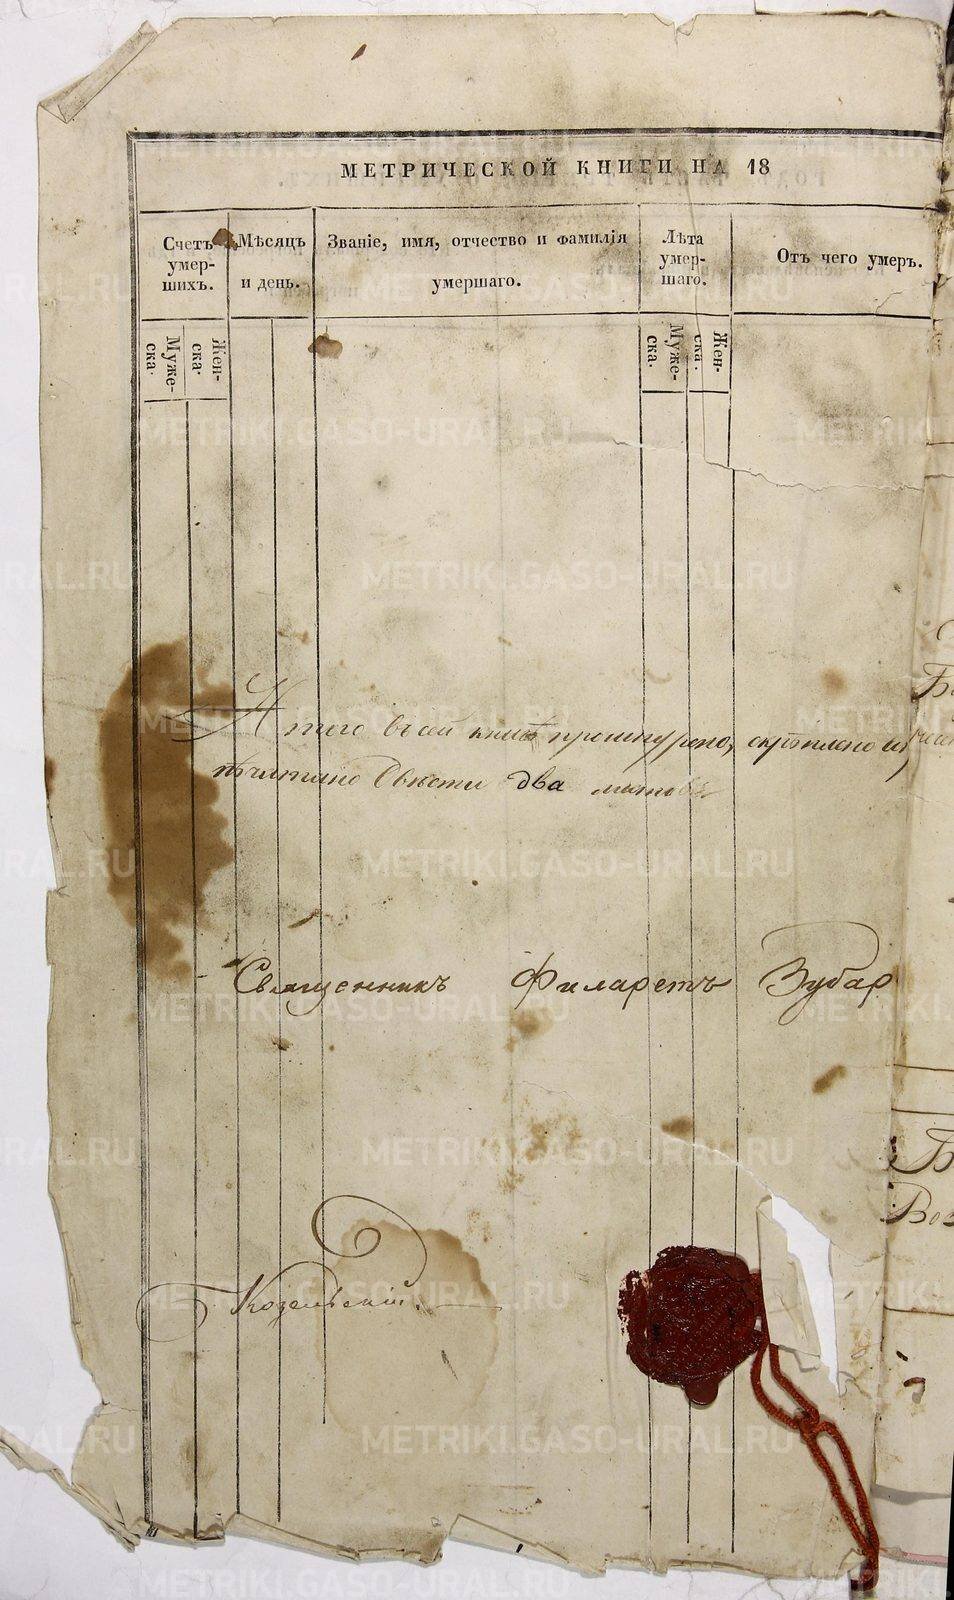 МЕТРИЧЕСКОЙ КНИГИ НА 18
Счетъ умер-
шихъ.
Мѣсяцъ
и день.
Званіе, имя, отчество и фамилія
умершаго.
Лѣта
умер-
шаго.
Отъ чего умеръ.
Муже-
ска.
Жен-
ска.
Муже-
ска.
Жен-
ска.
А того въ сей книгѣ прошнуровано, скрѣплено и
двѣсти два листовъ
Священникъ Филаретъ Зубар
METRIKI.GASO-URAL.RU